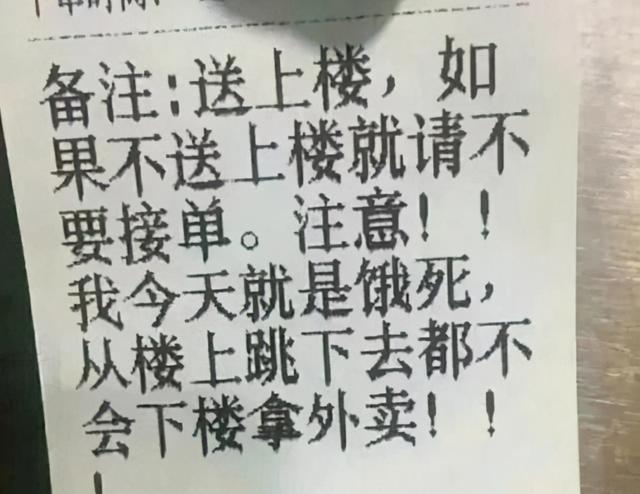 备注:送上楼，如
果不送上楼就请不
要接单。注意！！
我今天就是饿死，
从楼上跳下去都不
会下楼拿外卖！！
！